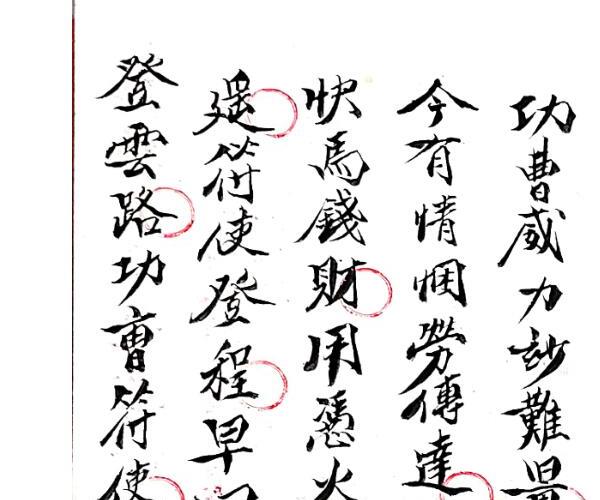 功曹威力玅難
今有情悃勞傳達
快馬錢財用憑火
遥符使登程早
登雲路功曹符使